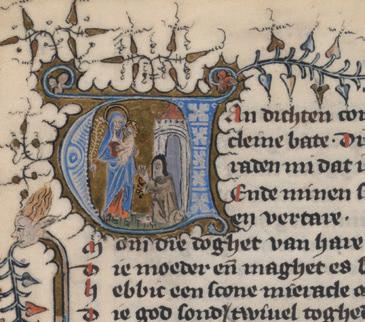 An dichten com
cleine bate · Di
raden mi dat i
Ende minen s
en vertare ·
Om die doghet van hare
Die moeder eñ maghet es b
hebbic een scone mieracle o
Die god sond' twiuel toghed